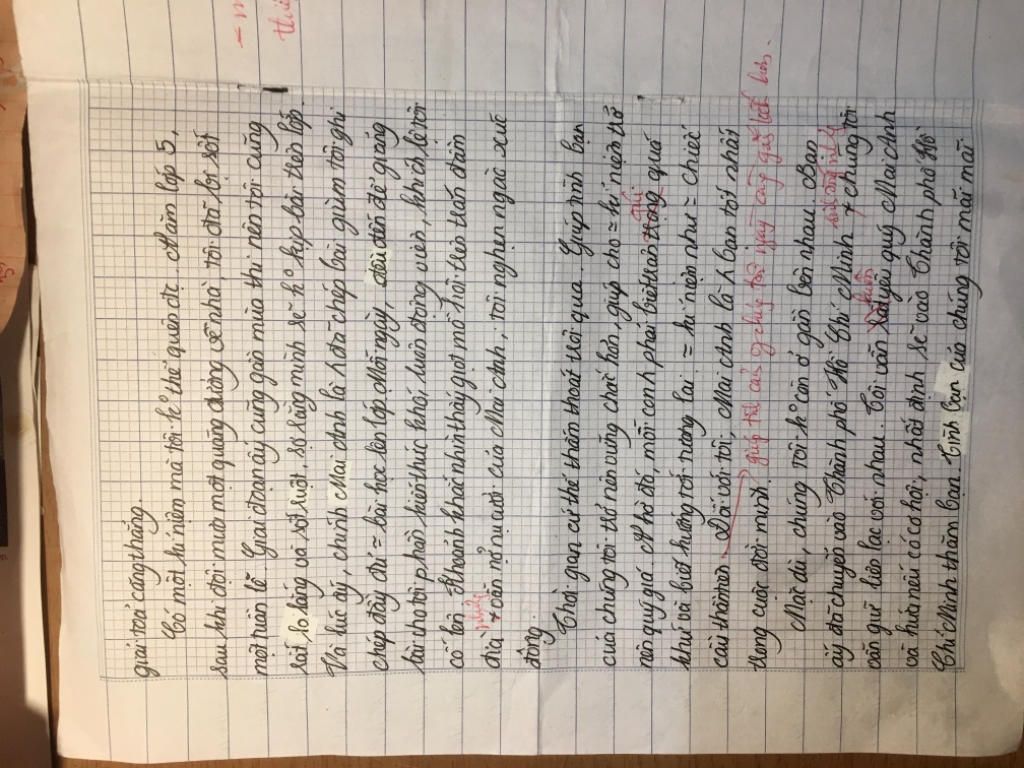 giải toả căng thẳng.
Có một kỉ niệm mà tôi k° thể quên đc. Năm lớp 5,
sau khi đội mưa một quãng đường về nhà, tôi đã bị sốt
một tuần lễ. Giai đoạn ấy cũng gần mùa thi nên tôi cũng
rất lo lắng và sốt ruột, sợ rằng mình sẽ k° kịp bài trên lớp.
Và lúc ấy, chính Mai Anh là n đã chép bài giùm tôi, ghi
chép đầy đủ = bài học lên lớp. Mỗi ngày, đều đến để giảng
bài cho tôi phần kiến thức khó, luôn động viên, khích lệ tôi
cố lên. Thoáng khi nhìn thấy giọt mồ hôi trên trán
của
+ vẫn nở nụ cười của Mai Anh, tôi nghẹn ngào xúc
động.
Thời gian cứ thế thấm thoát trôi qua. Giúp tình bạn
của chúng tôi trở nên vững chãi hơn, giúp cho = kỉ niệm trở
nên quý giá. Nhờ đó, mỗi con phải biết trân trọng quá
khứ và bướ hướng tới tương lai = kỉ niệm như = chiếc
cầu thời gian. Đối với tôi, Mai Anh là n bạn tốt nhất
trong cuộc đời mình. giúp tình cảm g chúng tôi ngày càng gắn bó hơn.
Mặc dù, chúng tôi k° còn ở gần bên nhau. Bạn
ấy đã chuyển vào Thành phố Hồ Chí Minh + chúng tôi
vẫn giữ liên lạc với nhau. Tôi vẫn rất yêu quý Mai Anh
và hứa nếu có cơ hội, nhất định sẽ vào Thành phố Hồ
Chí Minh thăm bạn. Tình bạn của chúng tôi mãi mãi